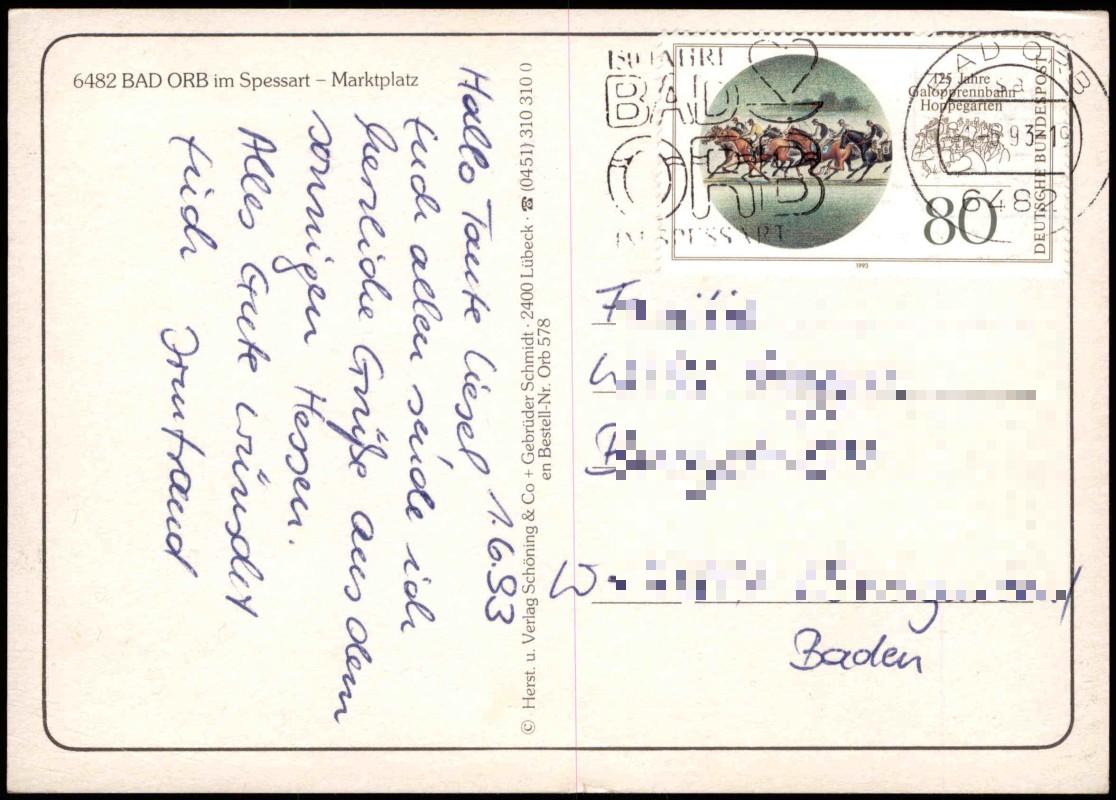 6482 BAD ORB im Spessart – Marktplatz
Hallo Tante Liesel 1.6.93
Euch allen sende ich
herzliche Grüße aus dem
sonnigen Hessen.
Alles Gute wünscht
Euch Irmtraud
© Herst. u. Verlag Schöning & Co + Gebrüder Schmidt · 2400 Lübeck · ☎ (0451) 310 310 0
en Bestell-Nr. Orb 578
150 JAHRE
BAD
ORB
IM SPESSART
125 Jahre
Galopprennbahn
Hoppegarten
80
DEUTSCHE BUNDESPOST
1993
BAD ORB
93-19
6482
Baden